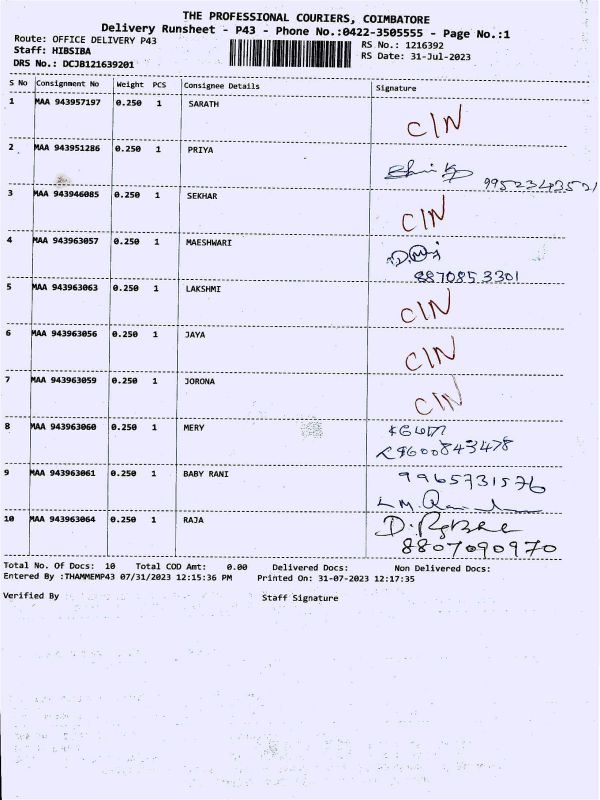 THE PROFESSIONAL COURIERS, COIMBATORE
Delivery Runsheet - P43 - Phone No.:0422-3505555 - Page No.:1
Route: OFFICE DELIVERY P43
Staff: HIBSIBA
DRS No.: DCJB121639201
RS No.: 1216392
RS Date: 31-Jul-2023
S No Consignment No Weight PCS Consignee Details Signature
1 MAA 943957197 0.250 1 SARATH CIN
2 MAA 943951286 0.250 1 PRIYA
9952343521
3 MAA 943946085 0.250 1 SEKHAR CIN
4 MAA 943963057 0.250 1 MAESHWARI
8870853301
5 MAA 943963063 0.250 1 LAKSHMI CIN
6 MAA 943963056 0.250 1 JAYA CIN
7 MAA 943963059 0.250 1 JORONA CIN
8 MAA 943963060 0.250 1 MERY
9600843478
9 MAA 943963061 0.250 1 BABY RANI 9965731576
10 MAA 943963064 0.250 1 RAJA
8807090970
Total No. Of Docs: 10 Total COD Amt: 0.00 Delivered Docs: Non Delivered Docs:
Entered By :THAMMEMP43 07/31/2023 12:15:36 PM Printed On: 31-07-2023 12:17:35
Verified By Staff Signature